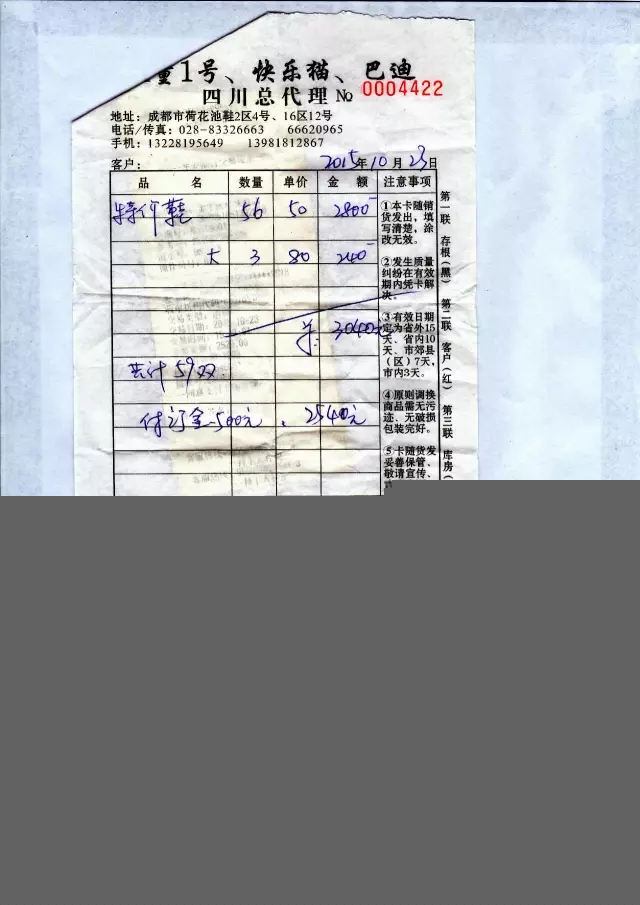 童1号、快乐猫、巴迪
四川总代理 № 0004422
地址：成都市荷花池鞋2区4号、16区12号
电话/传真：028-83326663 66620965
手机：13228195649 13981812867
客户： 2015年10月23日
品 名 数量 单价 金 额 注意事项
特价鞋 56 50 2800
大 3 80 240
共: 3040元
共计59双
付订金500元. 2540元
①本卡随销
货发出，填
写清楚，涂
改无效。
②发生质量
纠纷在有效
期内凭卡解
决。
③有效日期
定为省外15
天、省内10
天、市郊县
（区）7天，
市内3天。
④原则调换
商品需无污
迹、无破损
包装完好。
⑤卡随货发
妥善保管、
敬请宣传、
第一联 存根（黑） 第二联 客户（红） 第三联 库房（